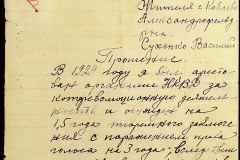 Жителя с. Коблево
Александродар
ры
Сухенко Василий
Прошение.
В 1929 году я был аресто
ван органами НКВД за
контрреволюционную деятель
ность и осужден на
1,5 года тюремного заключе
ния с поражением прав
голоса на 3 года,